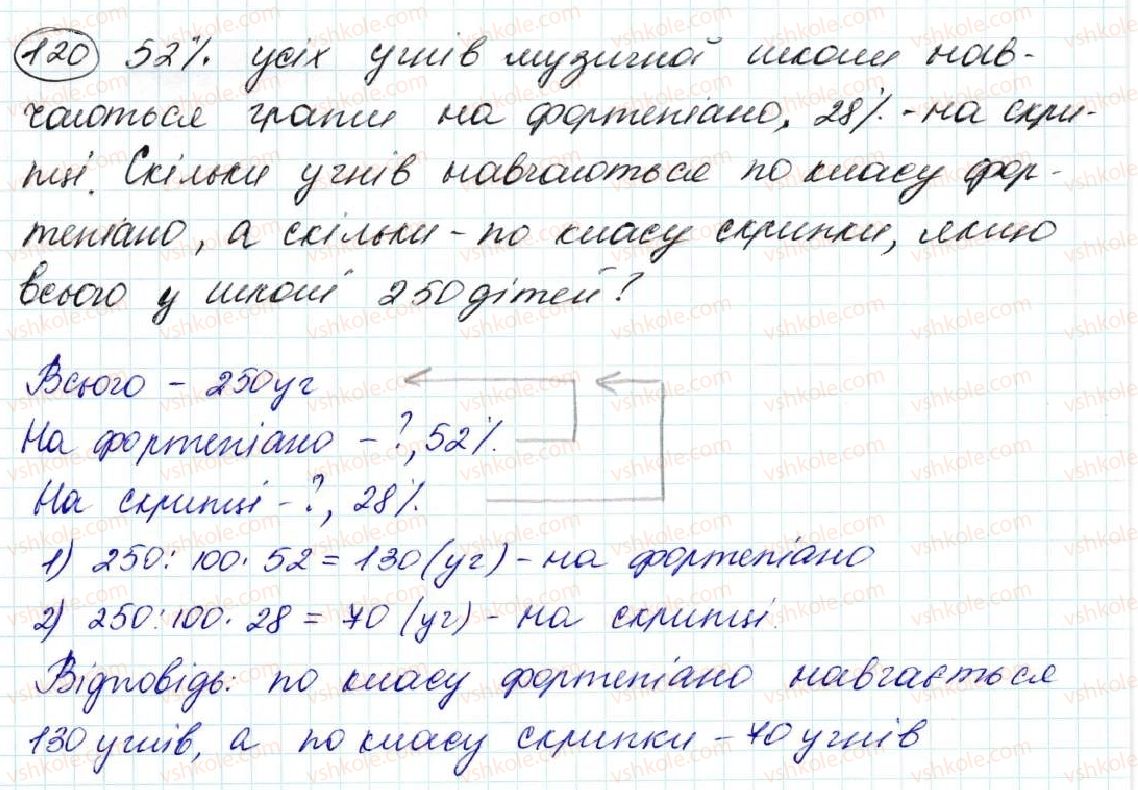 120 52% усіх учнів музичної школи нав-
чаються грати на фортепіано, 28% - на скри-
пці. Скільки учнів навчаються по класу фор-
тепіано, а скільки - по класу скрипки, якщо
всього у школі 250 дітей?
Всього - 250 уч
На фортепіано - ?, 52%
На скрипці - ?, 28%
1) 250 : 100 · 52 = 130 (уч) - на фортепіано
2) 250 : 100 · 28 = 70 (уч) - на скрипці
Відповідь: по класу фортепіано навчається
130 учнів, а по класу скрипки - 70 учнів